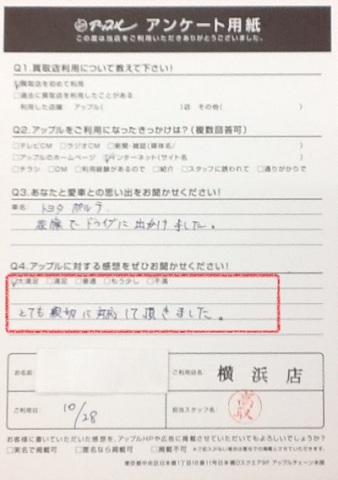 アップル アンケート用紙
この度は当店をご利用いただきありがとうございました。
Q1.買取店利用について教えて下さい!
□買取店を初めて利用
□過去に買取店を利用したことがある
利用した店舗: アップル( )店 その他( )
Q2.アップルをご利用になったきっかけは?(複数回答可)
□テレビCM □ラジオCM □新聞・雑誌(媒体名/ )
□アップルのホームページ □インターネット(サイト名 )
□チラシ □DM □利用経験があるので □紹介 □スタッフに誘われて □通りがかりで
Q3.あなたと愛車との思い出をお聞かせください!
車名: トヨタ ポルテ
家族でドライブに出かけました。
Q4.アップルに対する感想をぜひお聞かせください!
□大満足 □満足 □普通 □もう少し □不満
とても親切に対応して頂きました。
お名前:
ご利用店名: 横浜店
ご利用日: 10/28
担当スタッフ名:
お客様に書いていただいた感想を、アップルHPや広告に掲載させていただいてもよろしいでしょうか?
□実名で掲載可 □匿名なら掲載可 □掲載不可
東京都中央区日本橋1丁目16番11号日本橋DスクエアF アップルチェーン本部